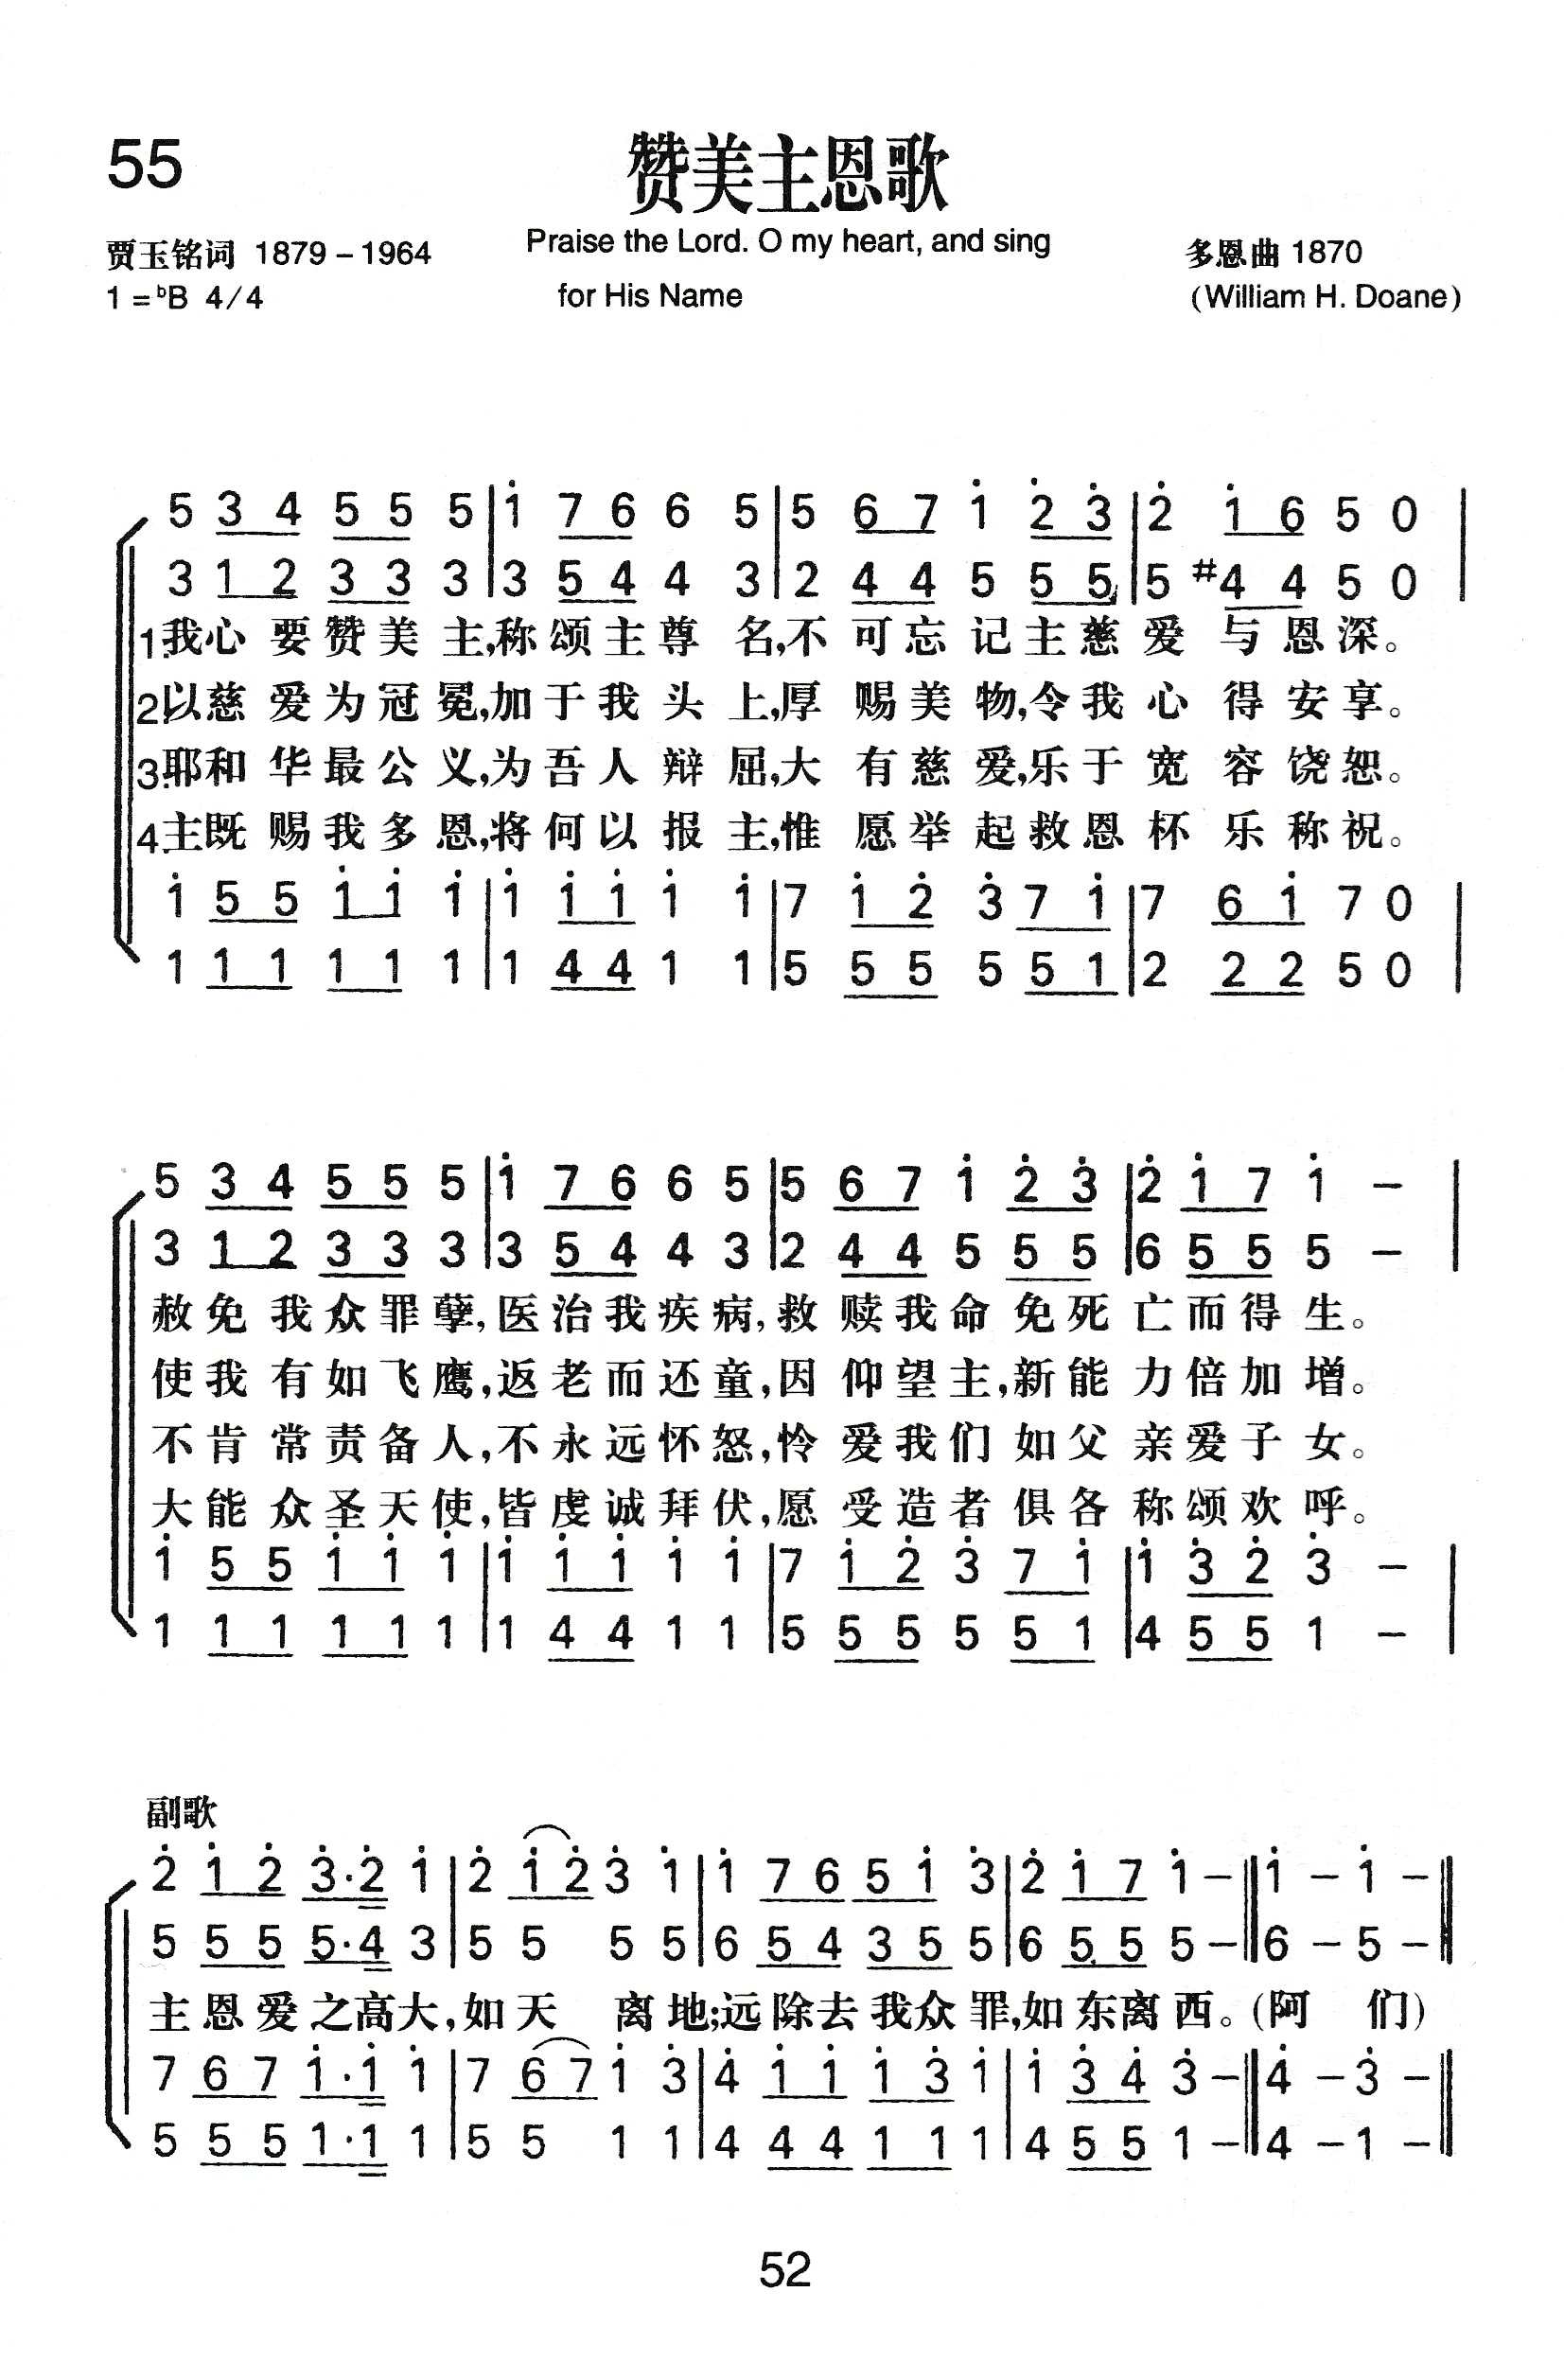 55
赞美主恩歌
贾玉铭词 1879-1964
Praise the Lord. O my heart, and sing
多恩曲 1870
1=ᵇB 4/4
for His Name
(William H. Doane)
5 3 4 5 5 5 | i̇ 7 6 6 5 | 5 6 7 i̇ 2̇ 3̇ | 2̇ i̇ 6 5 0 |
3 1 2 3 3 3 | 3 5 4 4 3 | 2 4 4 5 5 5 | 5 #4 4 5 0 |
1.我心要赞美主,称颂主尊名,不可忘记主慈爱与恩深。
2.以慈爱为冠冕,加于我头上,厚赐美物,令我心得安享。
3.耶和华最公义,为吾人辩屈,大有慈爱,乐于宽容饶恕。
4.主既赐我多恩,将何以报主,惟愿举起救恩杯乐称祝。
i̇ 5 5 i̇ i̇ i̇ | i̇ i̇ i̇ i̇ i̇ | 7 i̇ 2̇ 3̇ 7 i̇ | 7 6 i̇ 7 0 |
1 1 1 1 1 1 | 1 4 4 1 1 | 5 5 5 5 5 1 | 2 2 2 5 0 |
5 3 4 5 5 5 | i̇ 7 6 6 5 | 5 6 7 i̇ 2̇ 3̇ | 2̇ i̇ 7 i̇ – |
3 1 2 3 3 3 | 3 5 4 4 3 | 2 4 4 5 5 5 | 6 5 5 5 – |
赦免我众罪孽,医治我疾病,救赎我命免死亡而得生。
使我有如飞鹰,返老而还童,因仰望主,新能力倍加增。
不肯常责备人,不永远怀怒,怜爱我们如父亲爱子女。
大能众圣天使,皆虔诚拜伏,愿受造者俱各称颂欢呼。
i̇ 5 5 i̇ i̇ i̇ | i̇ i̇ i̇ i̇ i̇ | 7 i̇ 2̇ 3̇ 7 i̇ | i̇ 3̇ 2̇ 3̇ – |
1 1 1 1 1 1 | 1 4 4 1 1 | 5 5 5 5 5 1 | 4 5 5 1 – |
副歌
2̇ i̇ 2̇ 3̇·2̇ i̇ | 2̇ i̇ 2̇ 3̇ i̇ | i̇ 7 6 5 i̇ 3̇ | 2̇ i̇ 7 i̇ – || i̇ – i̇ – ||
5 5 5 5·4 3 | 5 5 5 5 | 6 5 4 3 5 5 | 6 5 5 5 – || 6 – 5 – ||
主恩爱之高大,如天离地;远除去我众罪,如东离西。(阿们)
7 6 7 i̇·i̇ i̇ | 7 6 7 i̇ 3̇ | 4̇ i̇ i̇ i̇ 3̇ i̇ | i̇ 3̇ 4̇ 3̇ – || 4̇ – 3̇ – ||
5 5 5 1·1 1 | 5 5 1 1 | 4 4 4 1 1 1 | 4 5 5 1 – || 4 – 1 – ||
52